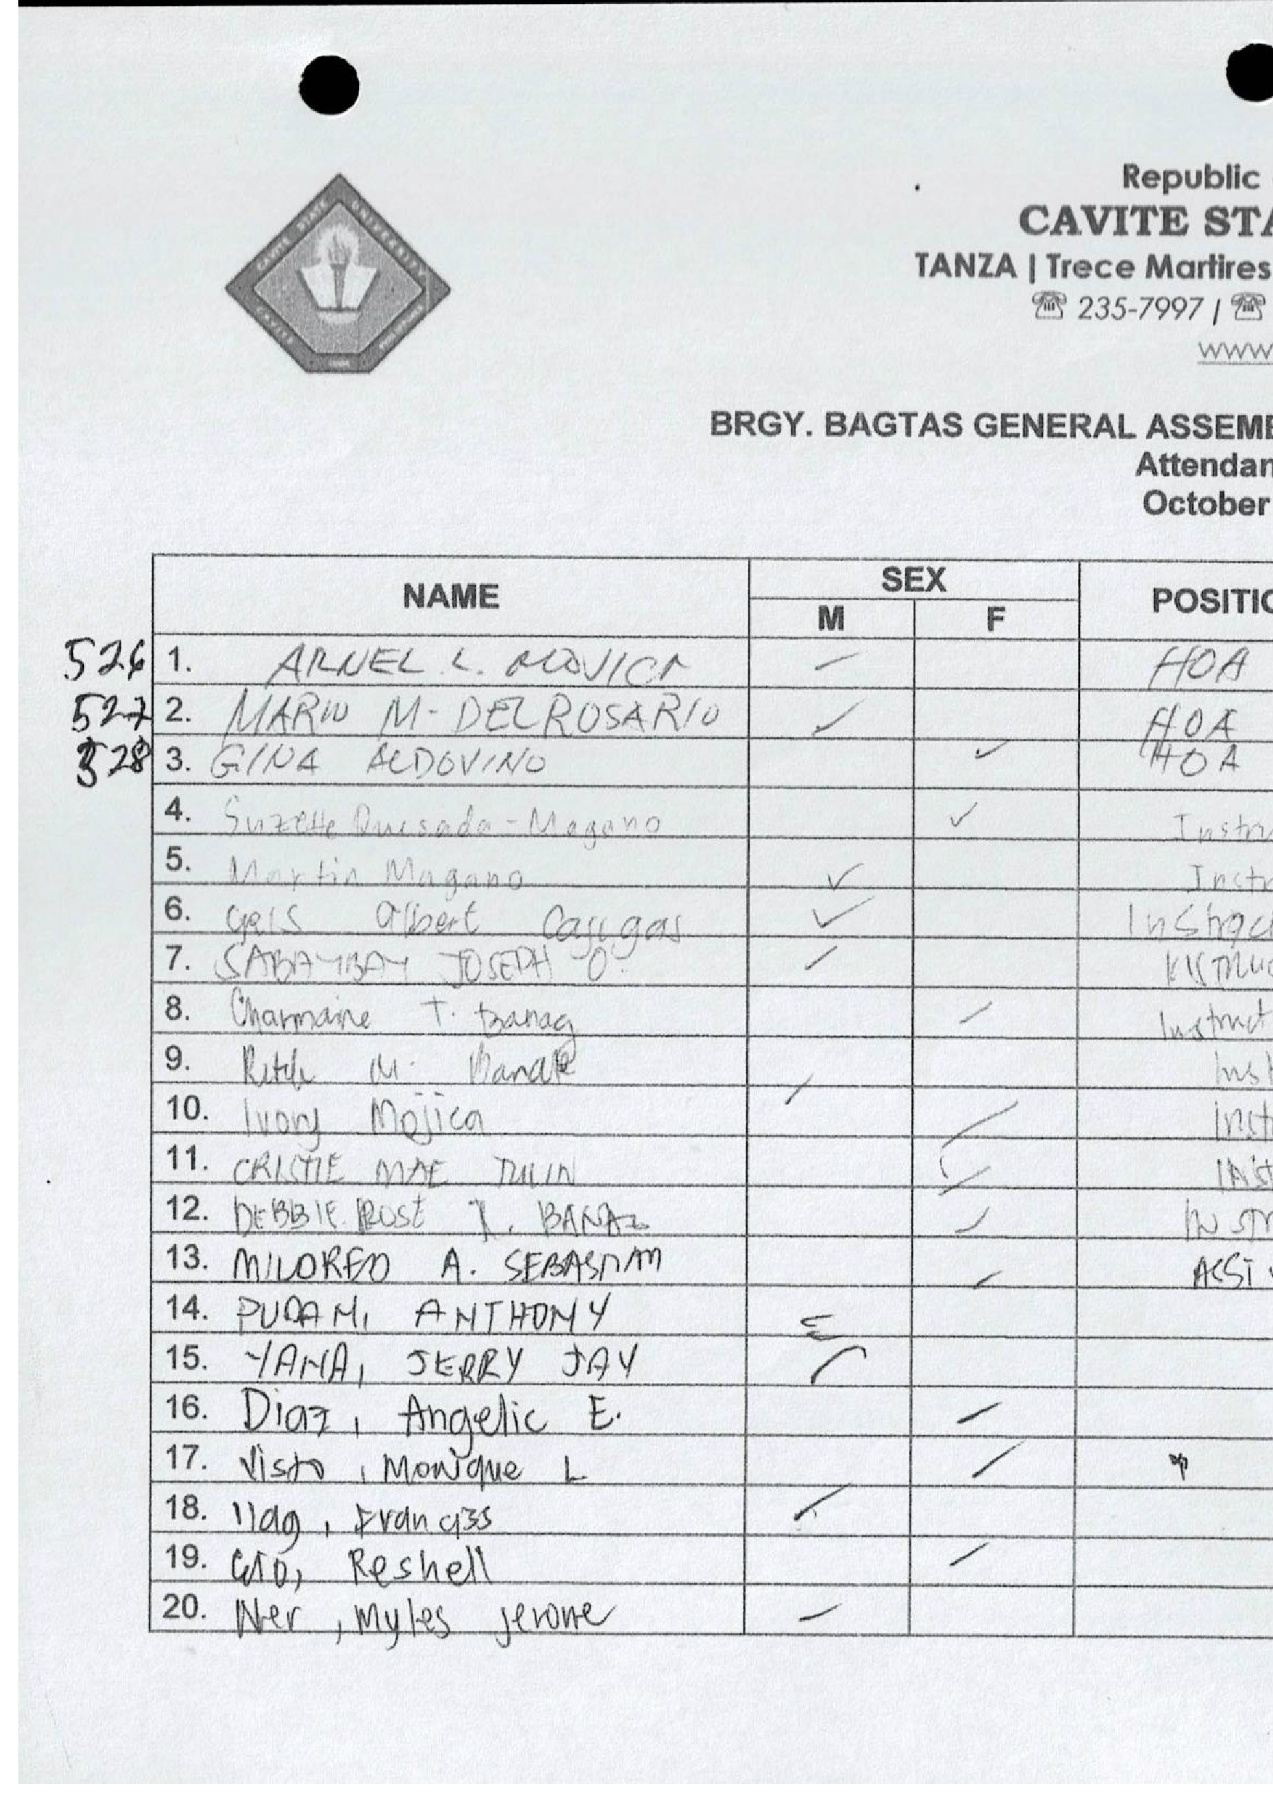 CAVITE STATE UNIVERSITY
CAVITE
PHILIPPINES
Republic
CAVITE STA
TANZA | Trece Martires
☎ 235-7997 / ☎
www
BRGY. BAGTAS GENERAL ASSEMB
Attendan
October
NAME SEX POSITIO
M F
526 1. ARNEL L. MOJICA HOA
527 2. MARIO M. DEL ROSARIO HOA
528 3. GINA ALDOVINO HOA
4. Suzette Quesada-Magano Instru
5. Martin Magano Instr
6. Gels Albert Cajigas Instruc
7. SABAYBAY JOSEPH O. INSTRUC
8. Charmaine T. Banag Instruct
9. M. Inst
10. Ivory Mojica Inst
11. CRISTIE MAE TULIN INST
12. DEBBIE ROSE INSTR
13. MILDRED A. SEBASTIAN ASSI
14. ANTHONY
15. YANA, JERRY JAY
16. Diaz, Angelic E.
17. Visto, Monique L
18. Ilag,
19. Reshell
20. Ner, Myles Jerome